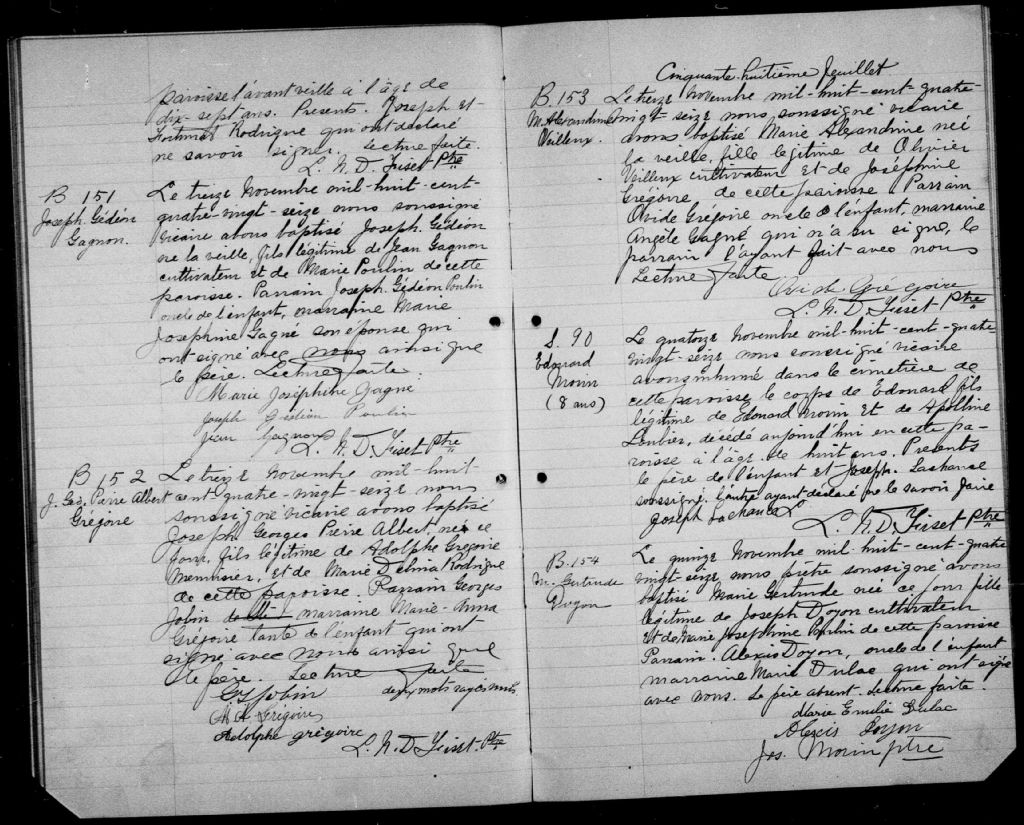 paroisse l'avant veille à l'âge de
dix-sept ans. Présents. Joseph et
Fortunat Rodrigue qui ont déclaré
ne savoir signer. Lecture faite.
L. N. D. Fiset Ptre
B 151
Joseph. Gédéon
Gagnon.
Le treize Novembre mil-huit-cent-
quatre-vingt-seize nous soussigné
vicaire avons baptisé Joseph. Gédéon
né la veille, fils légitime de Jean Gagnon
cultivateur et de Marie Poulin de cette
paroisse. Parrain Joseph. Gédéon Poulin
oncle de l'enfant, marraine Marie
Josephine Gagné son épouse qui
ont signé avec nous ainsi que
le père. Lecture faite.
Marie Joséphine Gagné
Joseph Gédéon Poulin
Jean Gagnon
L. N. D. Fiset Ptre
B 152
J. Geo. Pierre Albert
Grégoire
Le treize Novembre mil-huit-
cent-quatre-vingt-seize nous
soussigné vicaire avons baptisé
Joseph Georges Pierre Albert, né ce
jour, fils légitime de Adolphe Grégoire
Menuisier, et de Marie Delima Rodrigue
de cette paroisse. Parrain Georges
Jobin marraine Marie-Anna
Grégoire tante de l'enfant qui ont
signé avec nous ainsi que
le père. Lecture faite
deux mots rayés nuls
G Jobin
M A Grégoire
Adolphe grégoire
L. N. D Fiset Ptre
Cinquante-huitième feuillet
B. 153
M. Alexandrine
Veilleux.
Le treize Novembre mil-huit-cent-quatre-
vingt seize nous soussigné vicaire
avons baptisé Marie Alexandrine née
la veille, fille légitime de Olivier
Veilleux cultivateur et de Joséphine
Grégoire de cette paroisse Parrain
Ovide Grégoire oncle de l'enfant, marraine
Angèle Gagné qui n'a su signe, le
parrain l'ayant fait avec nous
Lecture faite
Ovide Grégoire
L. N. D Fiset Ptre
S. 90
Edouard
Morin
(8 ans)
Le quatorze Novembre mil-huit-cent-quatre
vingt-seize nous soussigné vicaire
avons inhumé dans le cimetière de
cette paroisse le corps de Edouard fils
légitime de Edouard Morin et de Apolline
Loubier, décédé aujourd'hui en cette pa-
roisse à l'âge de huit ans. Présents
le père de l'enfant et Joseph. Lachance
soussigné. l'autre ayant déclaré ne le savoir faire
Joseph Lachance
L. N. D. Fiset Ptre
B. 154
M. Gertrude
Doyon
Le quinze Novembre mil-huit-cent-quatre
vingt-seize nous prêtre soussigné avons
baptisé Marie Gertrude née ce jour fille
légitime de Joseph Doyon cultivateur
et de Marie Josephine Poulin de cette paroisse
Parrain. Alexis Doyon, oncle de l'enfant
marraine Marie Dulac qui ont signé
avec nous. Le père absent. Lecture faite.
Marie Emilie Dulac
Alexis Doyon
Jos. Morin ptre